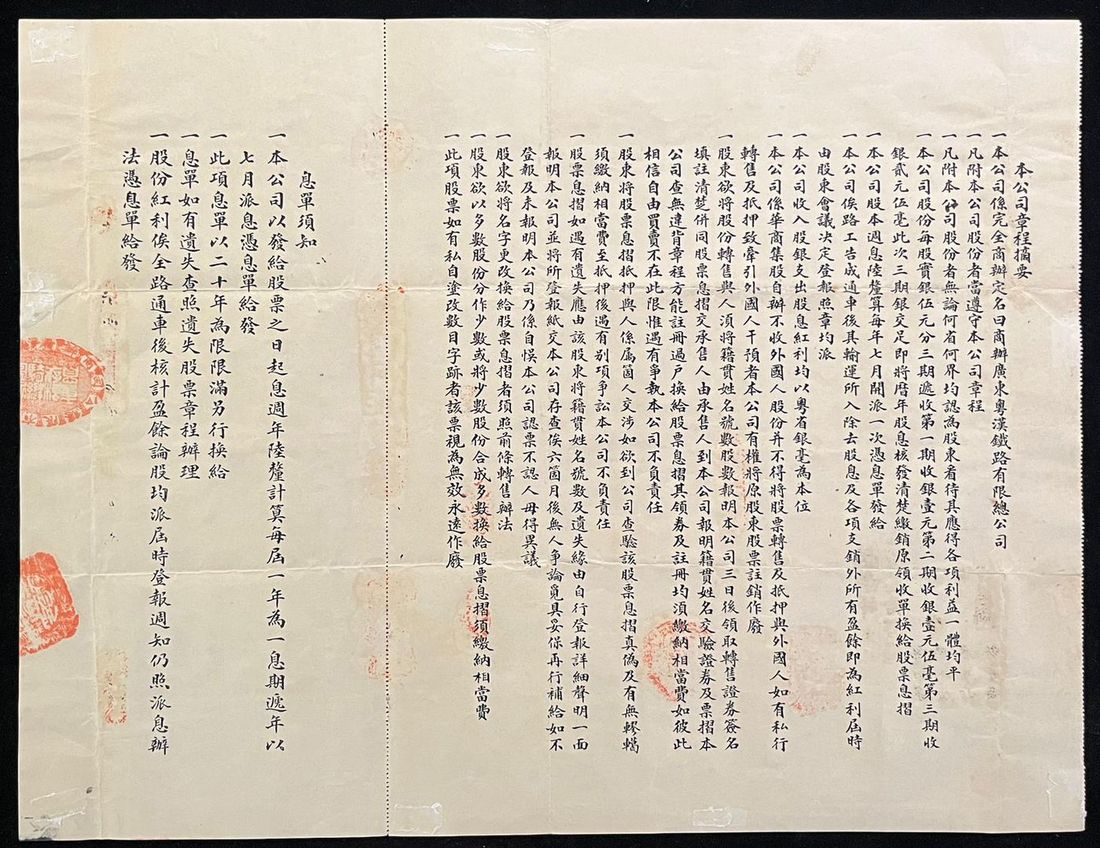 本公司章程摘要
一本公司係完全商辦定名曰商辦廣東粵漢鐵路有限總公司
一凡附本公司股份者當遵守本公司章程
一凡附本公司股份者無論何省何界均認為股東看待其應得各項利益一體均平
一本公司股份每股實銀伍元分三期遞收第一期收銀壹元第二期收銀壹元伍毫第三期收
銀貳元伍毫此次三期銀交足即將曆年股息核發清楚繳銷原領收單換給股票息摺
一本公司股本週息陸釐算每年七月開派一次憑息單發給
一本公司俟路工告成通車後其輸運所入除去股息及各項支銷外所有盈餘即為紅利屆時
由股東會議決定登報照章均派
一本公司收入股銀支出股息紅利均以粵省銀毫為本位
一本公司係華商集股自辦不收外國人股份並不得將股票轉售及抵押與外國人如有私行
轉售及抵押致牽引外國人干預者本公司有權將原股東股票註銷作廢
一股東欲將股份轉售與人須將籍貫姓名號數股數報明本公司三日後領取轉售證券簽名
填註清楚併同股票息摺交承售人由承售人到本公司報明籍貫姓名交驗證券及票摺本
公司查無違背章程方能註冊過戶換給股票息摺其領券及註冊均須繳納相當費如彼此
相信自由買賣不在此限惟遇有爭執本公司不負責任
一股東將股票息摺抵押與人係屬箇人交涉如欲到公司查驗該股票息摺真偽及有無轇轕
須繳納相當費至抵押後遇有別項爭訟本公司不負責任
一股票息摺如遇有遺失應由該股東將籍貫姓名號數及遺失緣由自行登報詳細聲明一面
報明本公司並將所登報紙交本公司存查俟六箇月後無人爭論覓具妥保再行補給如不
登報及未報明本公司乃係自悞本公司認票不認人毋得異議
一股東欲將名字更改換給股票息摺者須照前條轉售辦法
一股東欲以多數股份分作少數或將少數股份合成多數換給股票息摺須繳納相當費
一此項股票如有私自塗改數目字跡者該票視為無效永遠作廢
息單須知
一本公司以發給股票之日起息週年陸釐計算每屆一年為一息期遞年以
七月派息憑息單給發
一此項息單以二十年為限限滿另行換給
一息單如有遺失查照遺失股票章程辦理
一股份紅利俟全路通車後核計盈餘論股均派屆時登報週知仍照派息辦
法憑息單給發